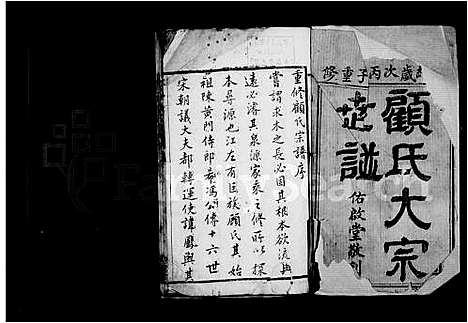 歲次丙子重修
顧氏大宗
世譜
佑啟堂敬刊
重修顧氏宗譜序
嘗謂求木之長必固其根本欲流之
遠必濬其泉源家乘之修所以探
本尋源也江左有巨族顧氏其始
祖陳黃門侍郎希馮公傳十六世
宋朝議大夫都轉運使諱鳳與其